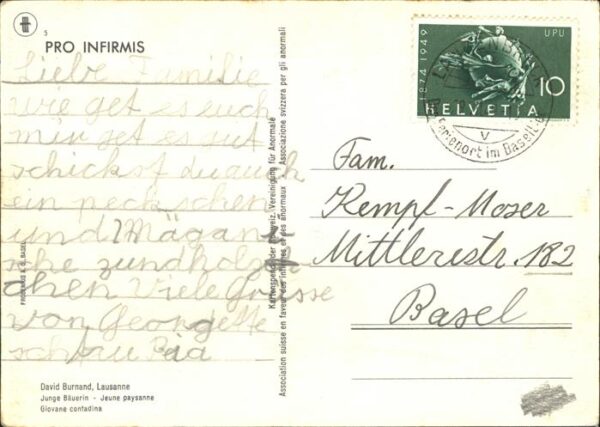 5
PRO INFIRMIS
Liebe Familie
wie get es euch
mir get es gut
schickst du auch
ein peckschen
und Mägan
sche zundholze
chen Viele Grüsse
von Georgette
David Burnand, Lausanne
Junge Bäuerin - Jeune paysanne
Giovane contadina
FROBENIUS A. G. BASEL
Kartenspende der Schweiz. Vereinigung für Anormale
Association suisse en faveur des infirmes et des anormaux • Associazione svizzera per gli anormali
1874-1949
UPU
10
HELVETIA
V
Ferienort im Baselb
Fam.
Kempf-Moser
Mittlerestr. 182
Basel